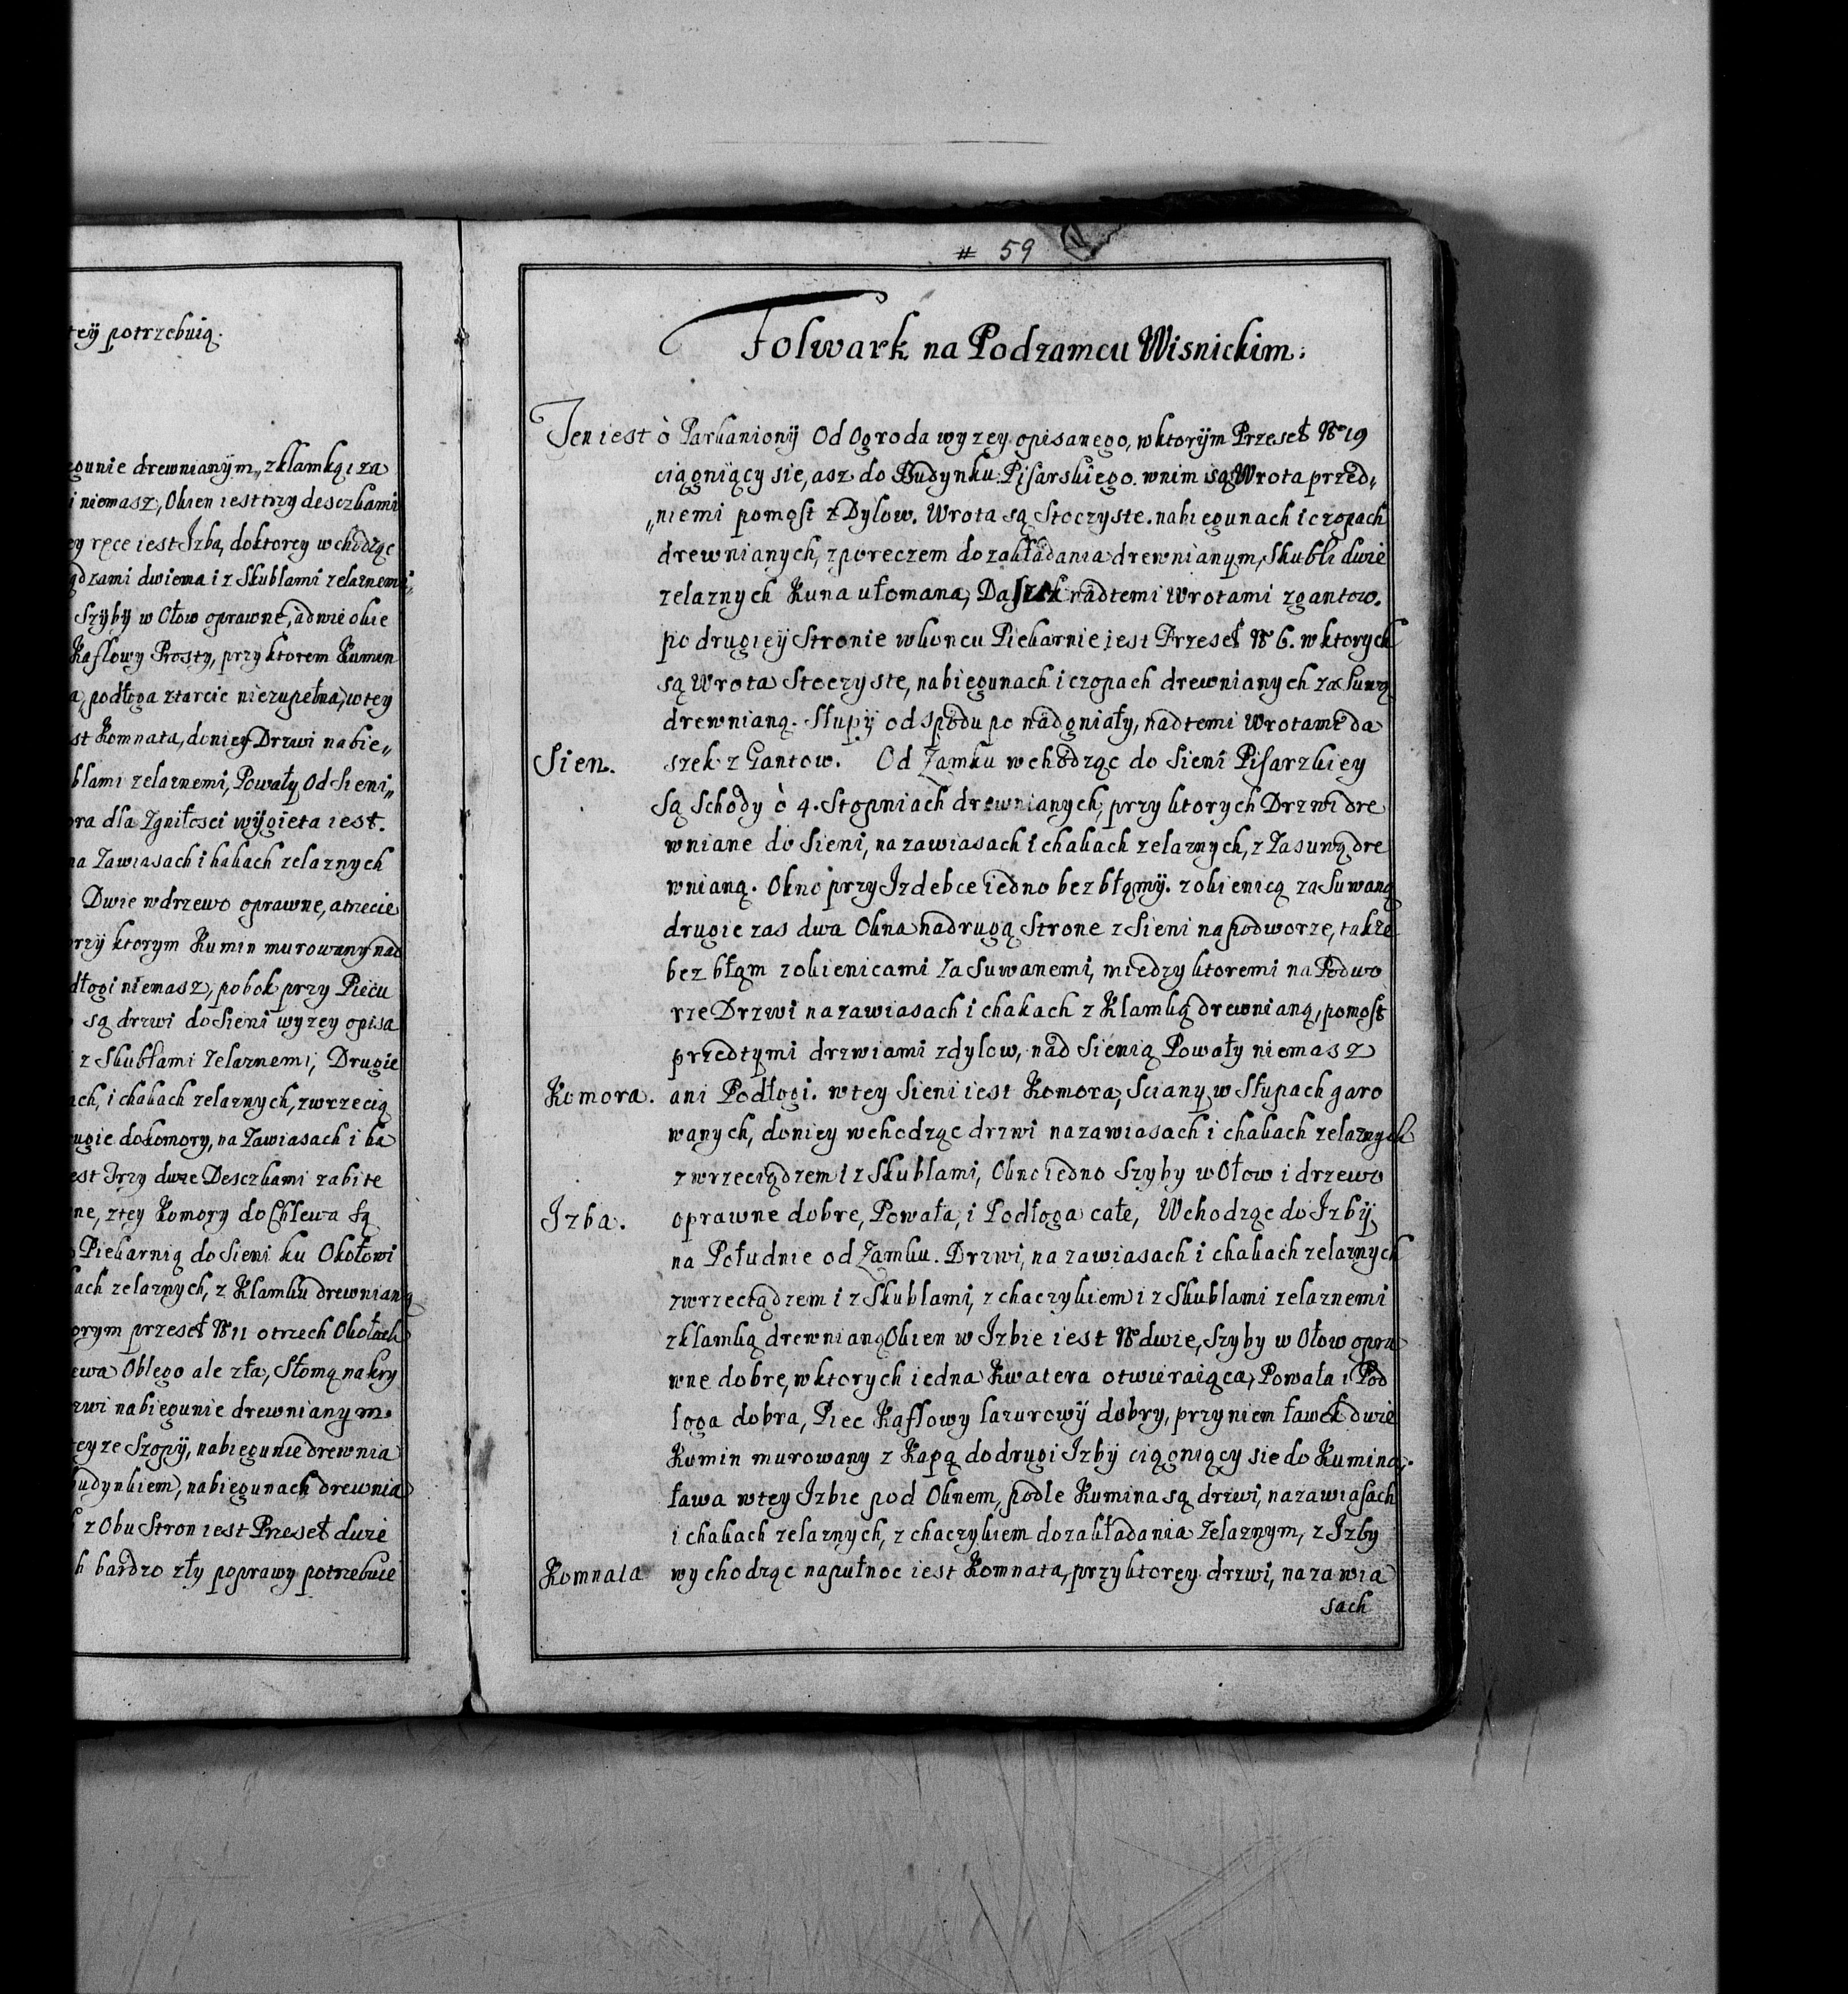 tey potrzebuią.
egunie drewnianÿm,, z klamką i za
i niemasz, Okien iest trzy desczkami
ey ręce iest Jzba, do ktorey wchodząc
ądzami dwiema i z Skublami zelaznemi,,
Szyby w Ołow oprawne, a dwie okie
Kaflowy Prosty, przy ktorem Kumin
a, podłoga z tarcic niezupełna, w tey
st Komnata, do niey Drzwi na bie,,
blami zelaznemi, Powały Od Sieni,,
ora dla Zgniłosci wÿgieta iest.
na Zawiasach i hakach zelaznych
Dwie w drzewo oprawne, a trzecie
orzÿ ktorym Kumin murowany nad
dłogi niemasz, pobok przy Piecu
są drzwi do Sieni wyzey opisa
z Skubłami Zelaznemi, Drugie
ach, i chakach zelaznych, z wrzecią
rugie do komory, na Zawiasach i ha
est Trzy dwie Desczkami zabite
ne, z tey Komory do Chlewa Są
Piekarnią do Sieni ku Okołowi
kach zelaznych, z Klamku drewnianą
orym przeseł No 11 o trzech Okołach
ewa Oblego ale zła, Słomą nakry
rzwi na biegunie drewnianym.
eyze Szopÿ, na biegunie drewnia
budynkiem, na biegunach drewnia
z Obu Stron iest Przeseł dwie
h bardzo zły poprawy potrzebuie
# 59
Folwark na Podzamcu Wisnickim:
Ten iest ò Parkanionÿ Od Ogroda wyzey opisanego, w ktorÿm Przeseł No 19
ciągniący sie, asz do Budynku Pisarskiego. w nim są Wrota przed,,
,,niemi pomost z Dylow. Wrota są Stoczyste. na biegunach i czopach
drewnianych, z poreczem do zakładania drewnianym, Skubli dwie
zelaznych Kuna ułomana, Daszek nad temi Wrotami z gantow.
po drugieÿ Stronie w koncu Piekarnie iest Przeseł No 6. w ktorych
są Wrota Stoczyste, na biegunach i czopach drewnianych zasuwą
drewnianą. Słupÿ od spodu po nadgniały, nad temi Wrotami da
Sien. szek z Gantow. Od Zamku wchodząc do Sieni Pisarzkiey
Są Schody ò 4. Stopniach drewnianych, przy ktorych Drzwi dre
wniane do Sieni, na zawiasach i chakach zelaznych, z Zasuwą dre
wnianą. Okno przy Jzdebce iedno bez błąmÿ. z okienicą zasuwaną
drugie zas dwa Okna na drugą Strone z Sieni na podworze, takze
bez błąm z okienicami Zasuwanemi, miedzy ktoremi na Podwo
rze Drzwi na zawiasach i chakach z Klamką drewnianą, pomost
przed tymi drzwiami z dylow, nad Sienią Powały niemasz
Komora. ani Podłogi. w tey Sieni iest Komora, Sciany w Słupach garo
wanych, do niey wchodząc drzwi na zawiasach i chakach zelaznych
z wrzeciądzem i z Skublami, Okno iedno Szyby w Ołow i drzewo
Jzba. oprawne dobre, Powała, i Podłoga całe, Wchodząc do Jzbÿ
na Południe od Zamku. Drzwi, na zawiasach i chakach zelaznych
z wrzeciądzem i z Skublami, z chaczykiem i z Skublami zelaznemi
z klamką drewnianą Okien w Jzbie iest No dwie, Szyby w Ołow opra
wne dobre, w ktorych iedna Kwatera otwieraiąca, Powała i Pod
loga dobra, Piec Kaflowy lazurowÿ dobry, przy niem ławek dwie
Kumin murowany z Kapą do drugi Jzbÿ ciągniący sie do Kumina.
ława w tey Jzbie pod Oknem, podle Kumina są drzwi, na zawiasach
i chakach zelaznych, z chaczykiem do zakładania Zelaznym, z Jzby
Komnata wychodząc na pułnoc iest Komnata, przy ktorey drzwi, na zawia
sach